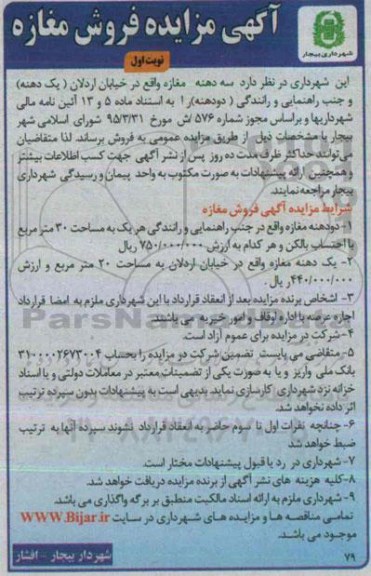 آگهی مزایده فروش مغازه
شهرداری بیجار
نوبت اول
این شهرداری در نظر دارد سه دهنه مغازه واقع در خیابان اردلان ( یک دهنه)
و جنب راهنمایی و رانندگی ( دودهنه)را به استناد ماده ۵ و ۱۳ آئین نامه مالی
شهرداریها و براساس مجوز شماره ۵۷۶/ش مورخ ۹۵/۳/۳۱ شورای اسلامی شهر
بیجار با مشخصات ذیل از طریق مزایده عمومی به فروش برساند. لذا متقاضیان
می‌توانند حداکثر ظرف مدت ده روز پس از نشر آگهی جهت کسب اطلاعات بیشتر
و همچنین ارائه پیشنهادات به صورت مکتوب به واحد پیمان و رسیدگی شهرداری
بیجار مراجعه نمایند.
شرایط مزایده آگهی فروش مغازه
۱- دودهنه مغازه واقع در جنب راهنمایی و رانندگی هر یک به مساحت ۳۰ متر مربع
با احتساب بالکن و هر کدام به ارزش ۷۵۰/۰۰۰/۰۰۰ ریال
۲- یک دهنه مغازه واقع در خیابان اردلان به مساحت ۲۰ متر مربع و ارزش
۴۴۰/۰۰۰/۰۰۰ ریال
۳- اشخاص برنده مزایده بعد از انعقاد قرارداد با این شهرداری ملزم به امضا قرارداد
اجاره عرصه با اداره اوقاف و امور خیریه می باشند
۴- شرکت در مزایده برای عموم آزاد است.
۵- متقاضی می بایست تضمین شرکت در مزایده را بحساب ۳۱۰۰۰۰۲۶۷۳۰۰۴
بانک ملی واریز و یا به صورت یکی از تضمینات معتبر در معاملات دولتی و یا اسناد
خزانه نزد شهرداری کارسازی نماید بدیهی است به پیشنهادات بدون سپرده ترتیب
اثر داده نخواهد شد.
۶- چنانچه نفرات اول تا سوم حاضر به انعقاد قرارداد نشوند سپرده آنها به ترتیب
ضبط خواهد شد
۷- شهرداری در رد یا قبول پیشنهادات مختار است.
۸- کلیه هزینه های نشر آگهی از برنده مزایده دریافت خواهد شد.
۹- شهرداری ملزم به ارائه اسناد مالکیت منطبق بر برگه واگذاری می باشد.
تمامی مناقصه ها و مزایده های شهرداری در سایت WWW.Bijar.ir
موجود می باشد.
شهردار بیجار - افشار
۷۹